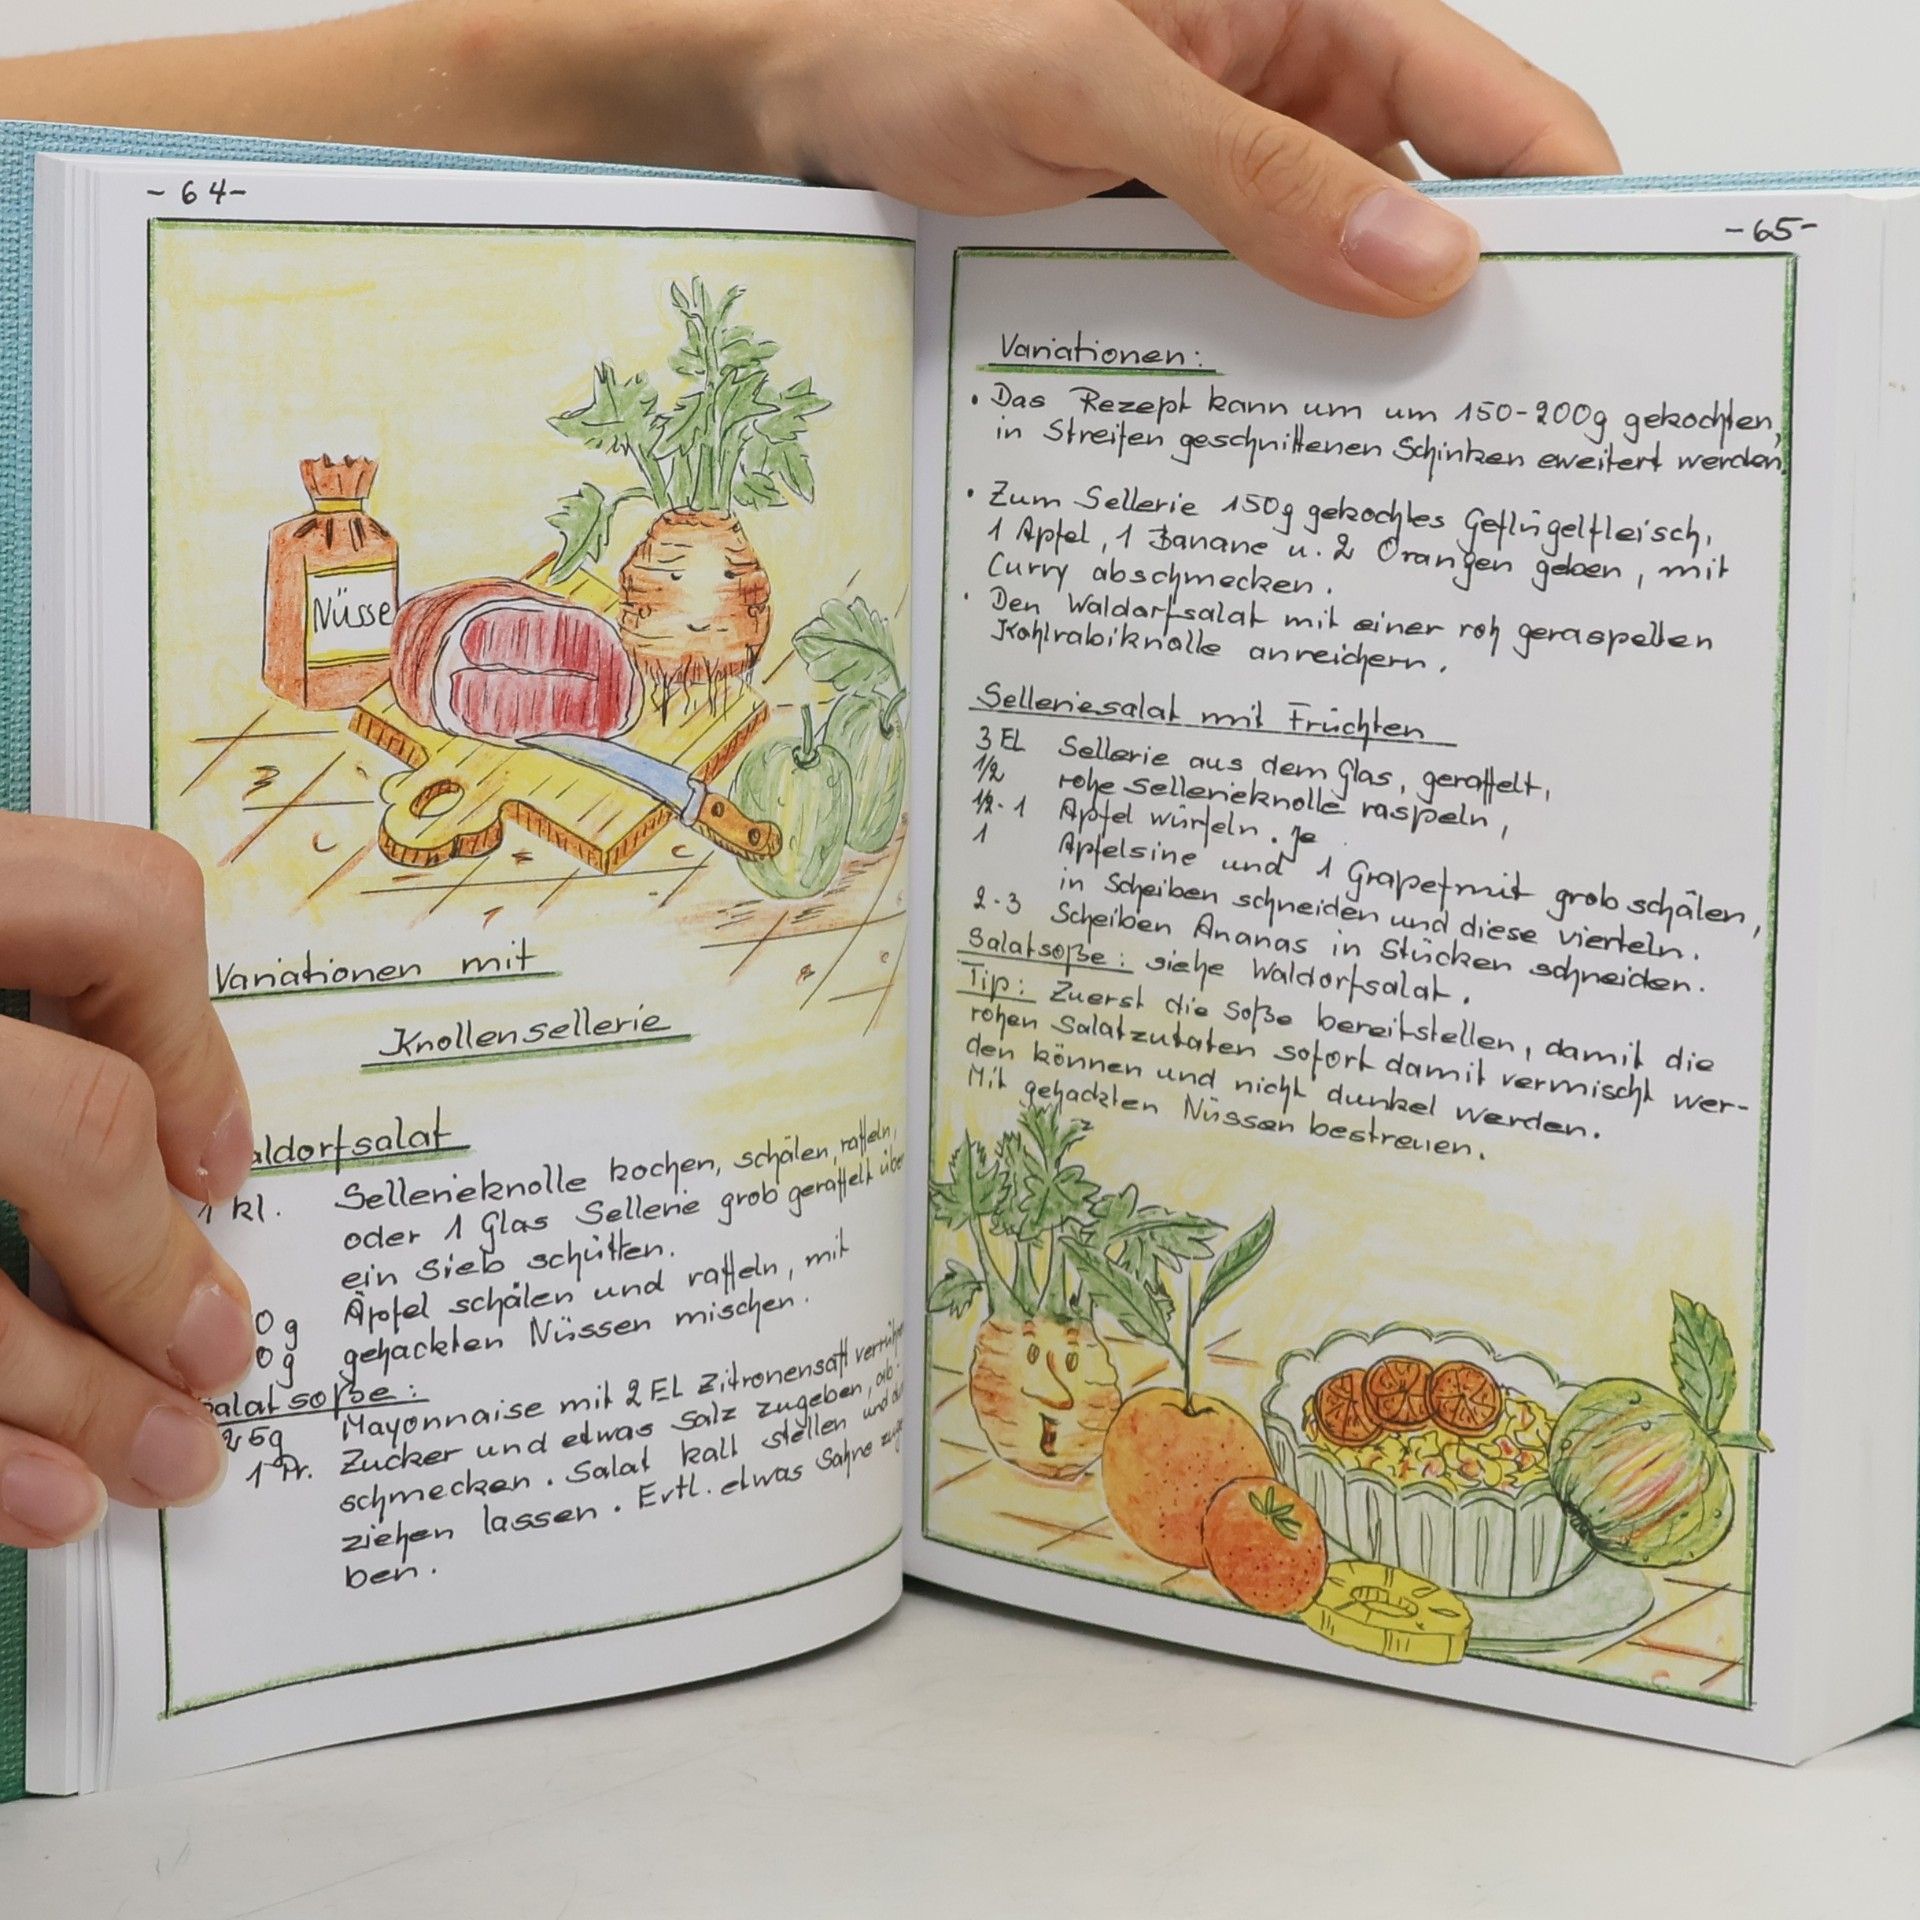 - 64 -
Nüsse
Variationen mit
Knollensellerie
aldorfsalat
1 kl. Sellerieknolle kochen, schälen, raffeln,
oder 1 Glas Sellerie grob geraffelt übe
ein Sieb schütten.
0g Äpfel schälen und raffeln, mit
0g gehackten Nüssen mischen.
alatsoße:
25g Mayonnaise mit 2 EL Zitronensaft verrühr
1 Pr. Zucker und etwas Salz zugeben, ab-
schmecken. Salat kalt stellen und
ziehen lassen. Evtl. etwas Sahne zuge
ben.
- 65 -
Variationen:
• Das Rezept kann um um 150-200g gekochten,
in Streifen geschnittenen Schinken eweitert werden.
• Zum Sellerie 150g gekochtes Geflügelfleisch,
1 Apfel, 1 Banane u. 2 Orangen geben, mit
Curry abschmecken.
• Den Waldorfsalat mit einer roh geraspelten
Kohlrabiknolle anreichern.
Selleriesalat mit Früchten
3 EL Sellerie aus dem Glas, geraffelt,
1/2 rohe Sellerieknolle raspeln,
1/2-1 Apfel würfeln. Je
1 Apfelsine und 1 Grapefruit grob schälen,
in Scheiben schneiden und diese vierteln.
2-3 Scheiben Ananas in Stücken schneiden.
Salatsoße: siehe Waldorfsalat.
Tip: Zuerst die Soße bereitstellen, damit die
rohen Salatzutaten sofort damit vermischt wer-
den können und nicht dunkel werden.
Mit gehackten Nüssen bestreuen.